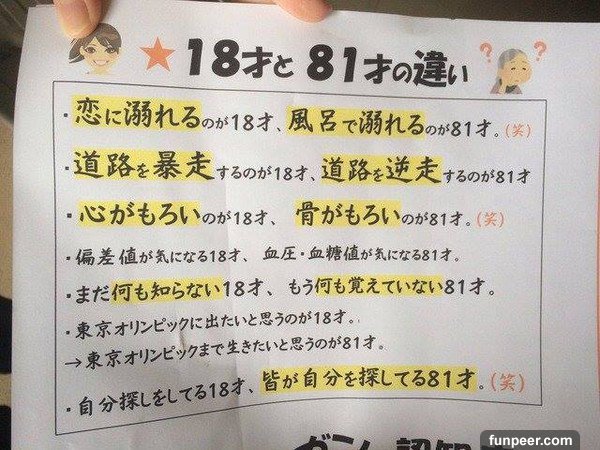 ★18才と81才の違い
? ?
・恋に溺れるのが18才、風呂で溺れるのが81才。(笑)
・道路を暴走するのが18才、道路を逆走するのが81才
・心がもろいのが18才、骨がもろいのが81才。(笑)
・偏差値が気になる18才、血圧・血糖値が気になる81才。
・まだ何も知らない18才、もう何も覚えていない81才。
・東京オリンピックに出たいと思うのが18才。
→東京オリンピックまで生きたいと思うのが81才。
・自分探しをしてる18才、皆が自分を探してる81才。(笑)
funpeer.com